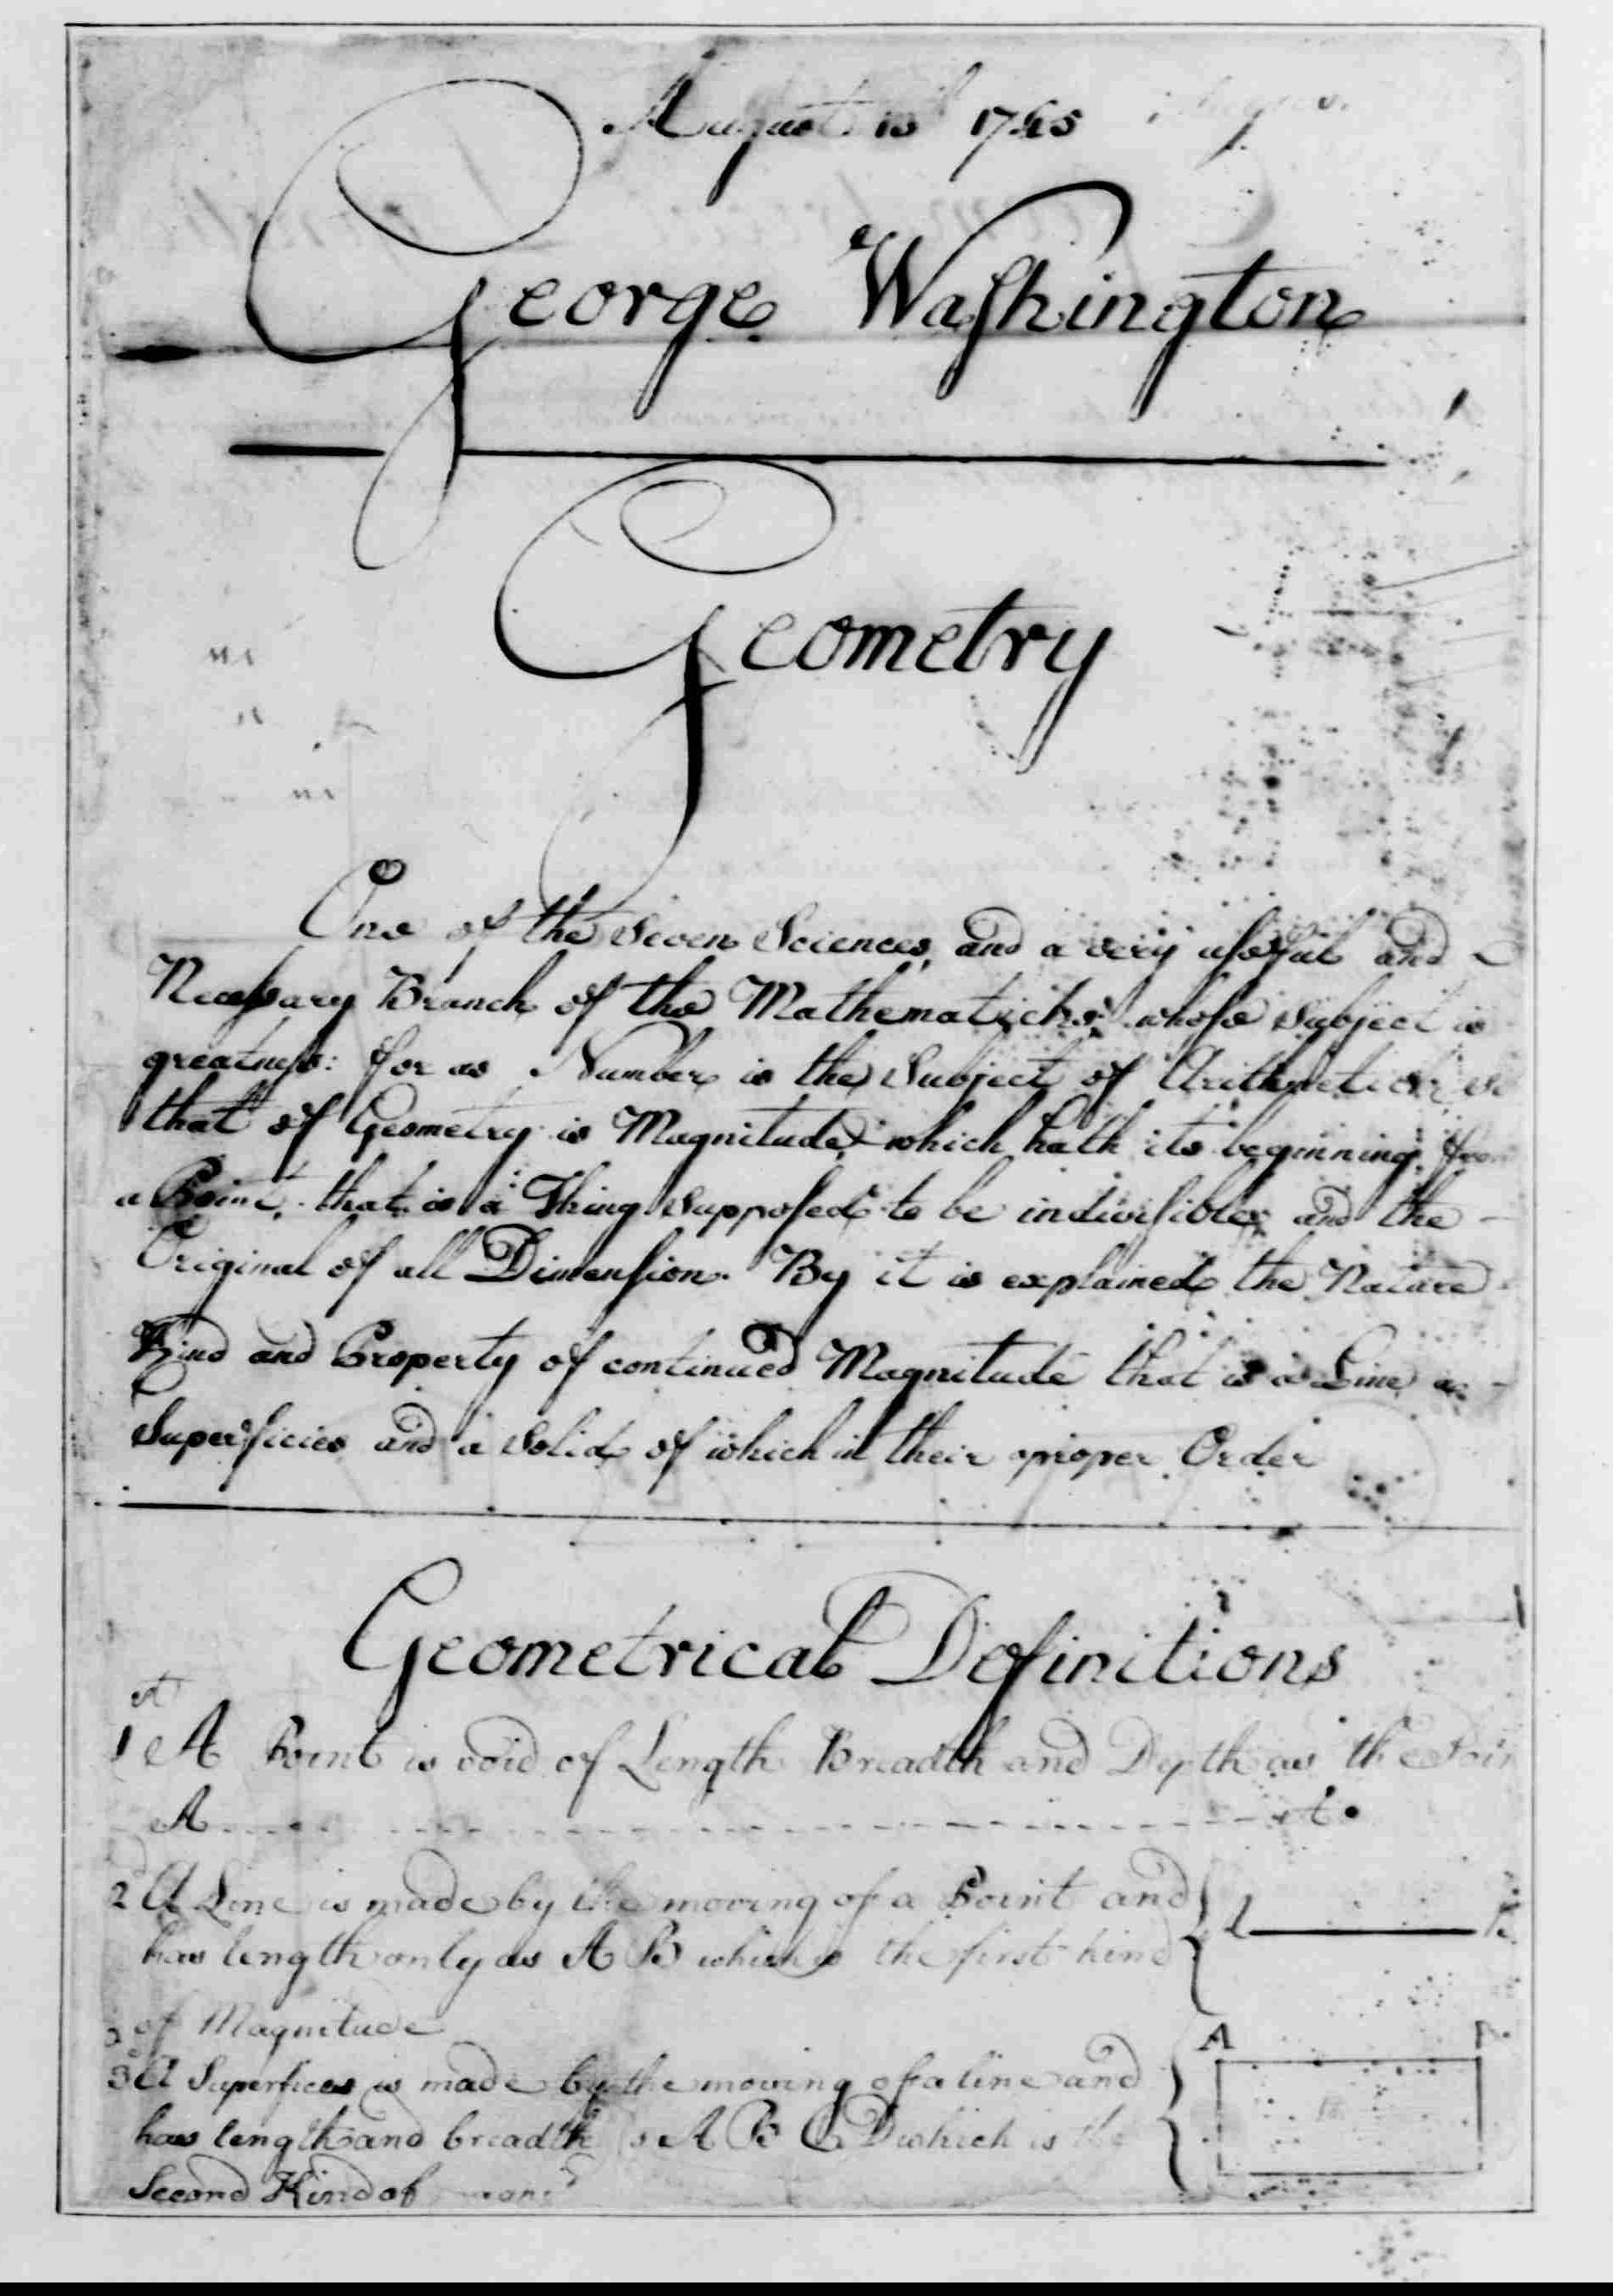 August 13th 1745
George Washington
Geometry
One of the Seven Sciences, and a very useful and
Necessary Branch of the Mathematicks whose Subject is
greatness: for as Number is the Subject of Arithmetick so
that of Geometry is Magnitude which hath its beginning from
a Point, that is a Thing supposed to be indivisible and the
Original of all Dimension. By it is explained the Nature
Kind and Property of continued Magnitude that is a Line, a
Superficies and a Solid of which in their proper Order
Geometrical Definitions
1st A Point is void of Length Breadth and Depth as the Poin
A A
2d A Line is made by the moving of a Point and
has length only as A B which is the first kind
of Magnitude
A
3d A Superfices is made by the moving of a line and
has length and breadth as A B C D which is the
Second Kind of